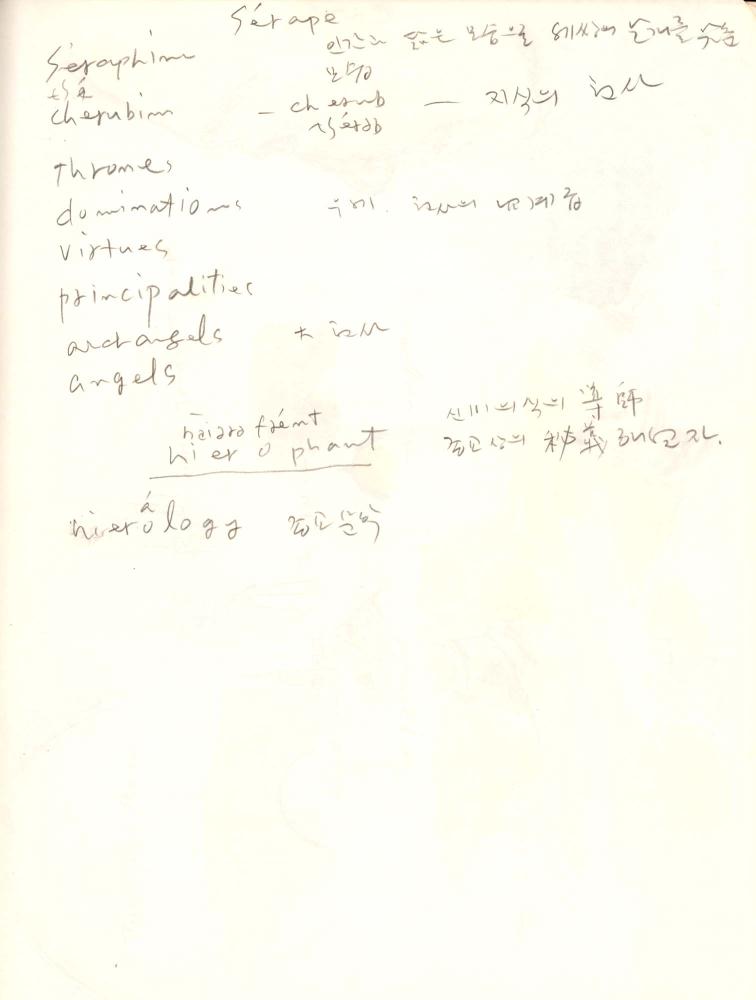 Sérape
Séraphim 인간과 닮은 모습으로 세쌍의 날개를 갖춤
cherubim — cherub — 지식의 천사
thrones
dominations 우세. 천사의 넷째 계급
virtues
principalities
archangels 大 천사
angels
hierophant 신비의식의 導師
종교상의 秘義 해설자.
hierology 종교문학